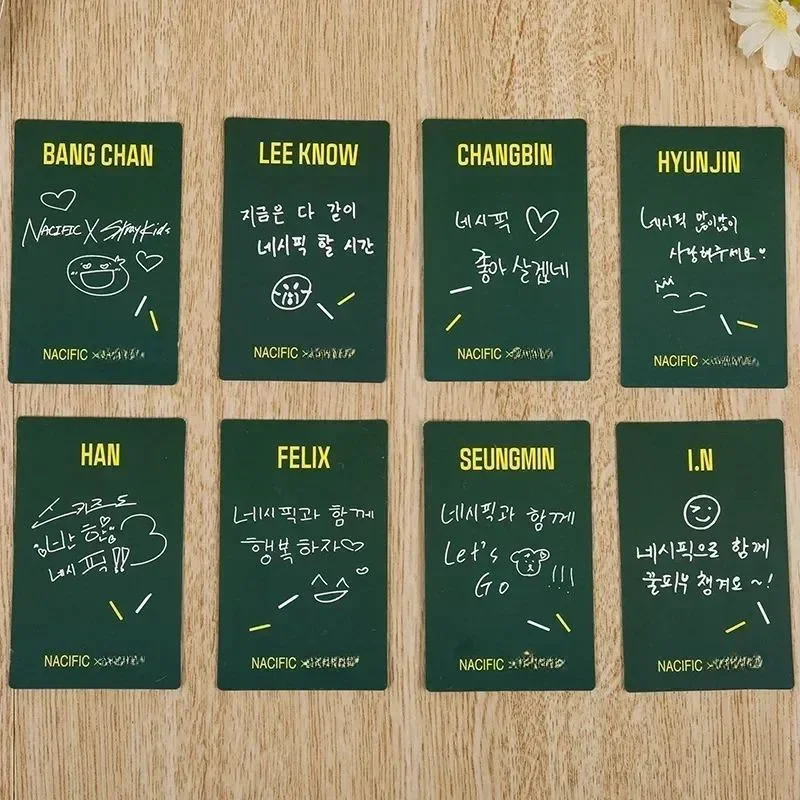 BANG CHAN
NACIFIC X StrayKids
NACIFIC ×
LEE KNOW
지금은 다 같이
네시픽 할 시간
NACIFIC ×
CHANGBIN
네시픽 ♡
좋아 살겠네
NACIFIC ×
HYUNJIN
네시픽 많이많이
사랑해주세요♡
NACIFIC ×
HAN
스키즈도
반한
네시픽!!
NACIFIC ×
FELIX
네시픽과 함께
행복하자♡
NACIFIC ×
SEUNGMIN
네시픽과 함께
Let's
GO !!!
NACIFIC ×
I.N
네시픽으로 함께
꿀피부 챙겨요~!
NACIFIC ×